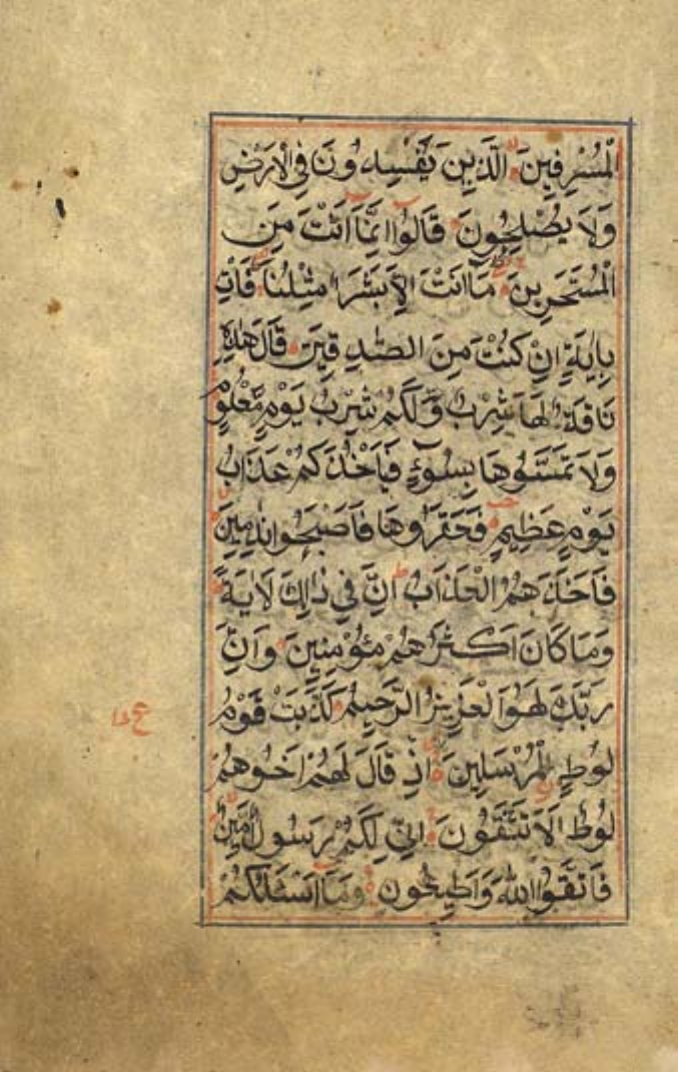 الْمُسْرِفِينَ الَّذِينَ يُفْسِدُونَ فِي الْاَرْضِ
وَلَا يُصْلِحُونَ قَالُوْا اِنَّمَا اَنْتَ مِنَ
الْمُسَحَّرِينَ مَا اَنْتَ اِلَّا بَشَرٌ مِثْلُنَا فَاْتِ
بِاٰيَةٍ اِنْ كُنْتَ مِنَ الصّٰدِقِينَ قَالَ هٰذِهٖ
نَاقَةٌ لَهَا شِرْبٌ وَّلَكُمْ شِرْبُ يَوْمٍ مَّعْلُومٍ
وَلَا تَمَسُّوهَا بِسُوْٓءٍ فَيَاْخُذَكُمْ عَذَابُ
يَوْمٍ عَظِيمٍ فَعَقَرُوهَا فَاَصْبَحُوا نٰدِمِينَ
فَاَخَذَهُمُ الْعَذَابُ اِنَّ فِي ذٰلِكَ لَاٰيَةً
وَمَا كَانَ اَكْثَرُهُمْ مُؤْمِنِينَ وَاِنَّ
رَبَّكَ لَهُوَ الْعَزِيزُ الرَّحِيمُ كَذَّبَتْ قَوْمُ
لُوطٍ الْمُرْسَلِينَ اِذْ قَالَ لَهُمْ اَخُوهُمْ
لُوطٌ اَلَا تَتَّقُونَ اِنِّي لَكُمْ رَسُولٌ اَمِينٌ
فَاتَّقُوا اللّٰهَ وَاَطِيعُونِ وَمَا اَسْـَٔلُكُمْ